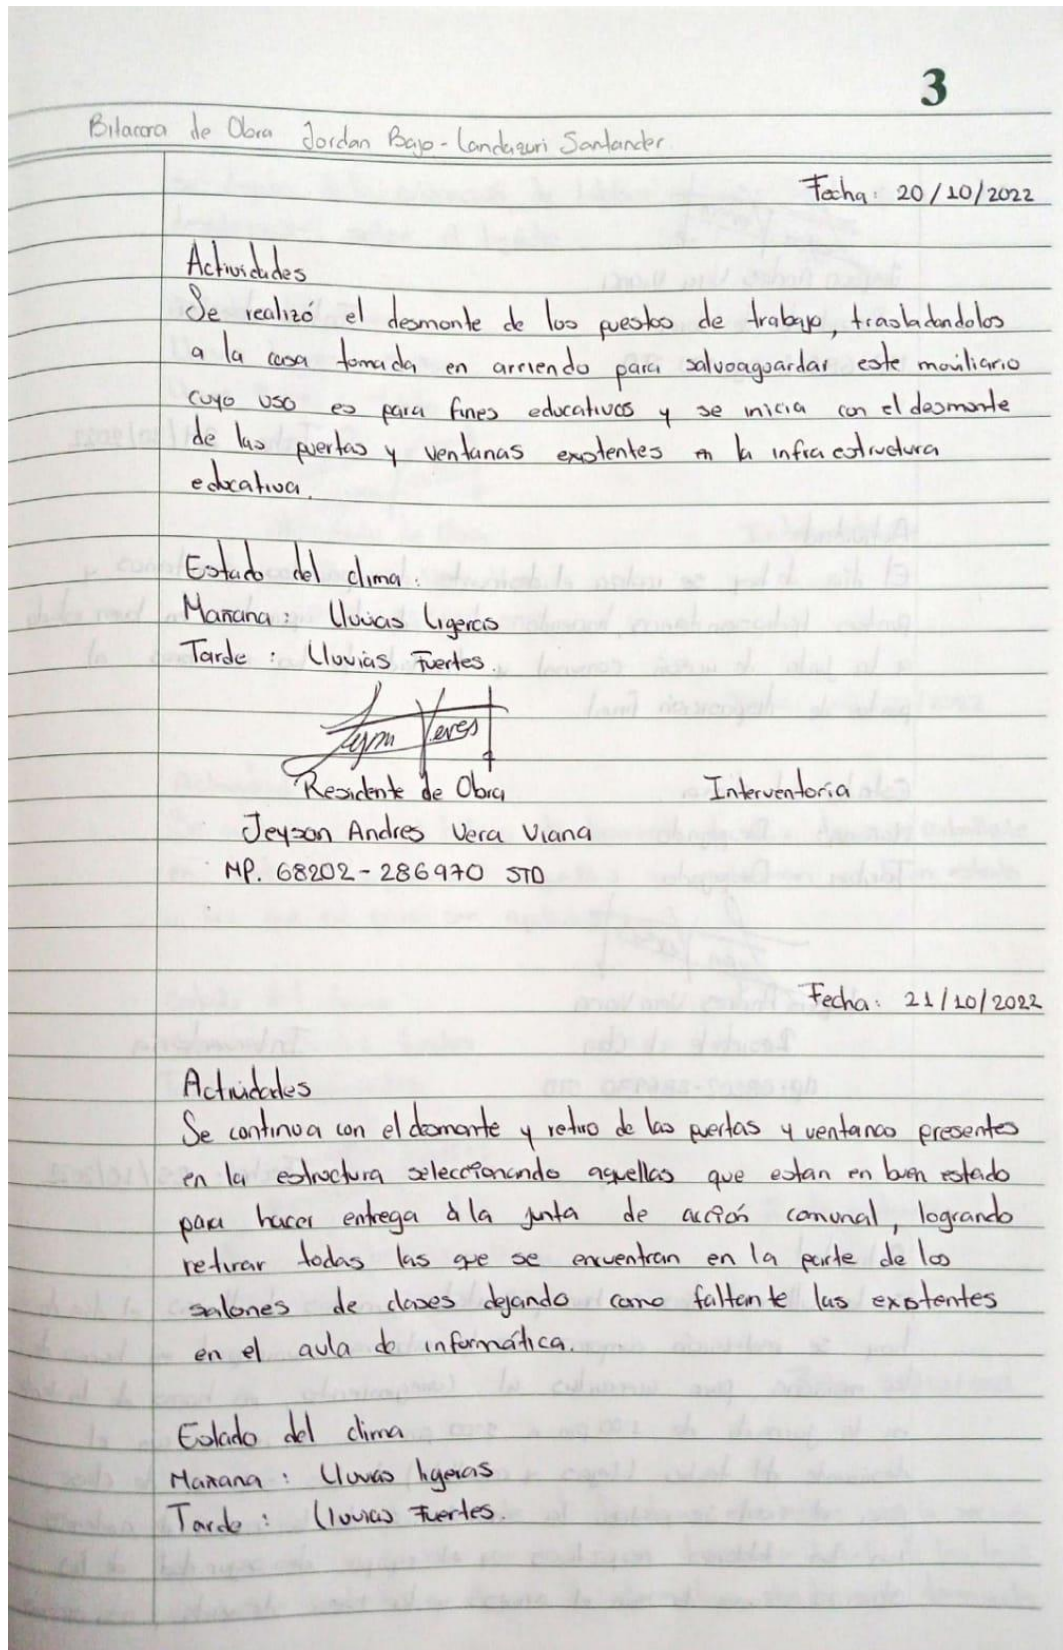 3
Bitacora de Obra Jordan Bajo - Landazuri Santander.
Fecha: 20/10/2022
Actividades
Se realizó el desmonte de los puestos de trabajo, trasladandolos
a la casa tomada en arriendo para salvoaguardar este moviliario
cuyo uso es para fines educativos y se inicia con el desmonte
de las puertas y ventanas existentes en la infraestructura
educativa.
Estado del clima:
Mañana: Lluvias Ligeras
Tarde: Lluvias Fuertes.
Residente de Obra Interventoría
Jeyson Andres Vera Viana
MP. 68202-286970 STD
Fecha: 21/10/2022
Actividades
Se continua con el desmonte y retiro de las puertas y ventanas presentes
en la estructura seleccionando aquellas que estan en buen estado
para hacer entrega a la junta de acción comunal, logrando
retirar todas las que se encuentran en la parte de los
salones de clases dejando como faltante las existentes
en el aula de informática.
Estado del clima
Mañana: Lluvias ligeras
Tarde: Lluvias Fuertes.